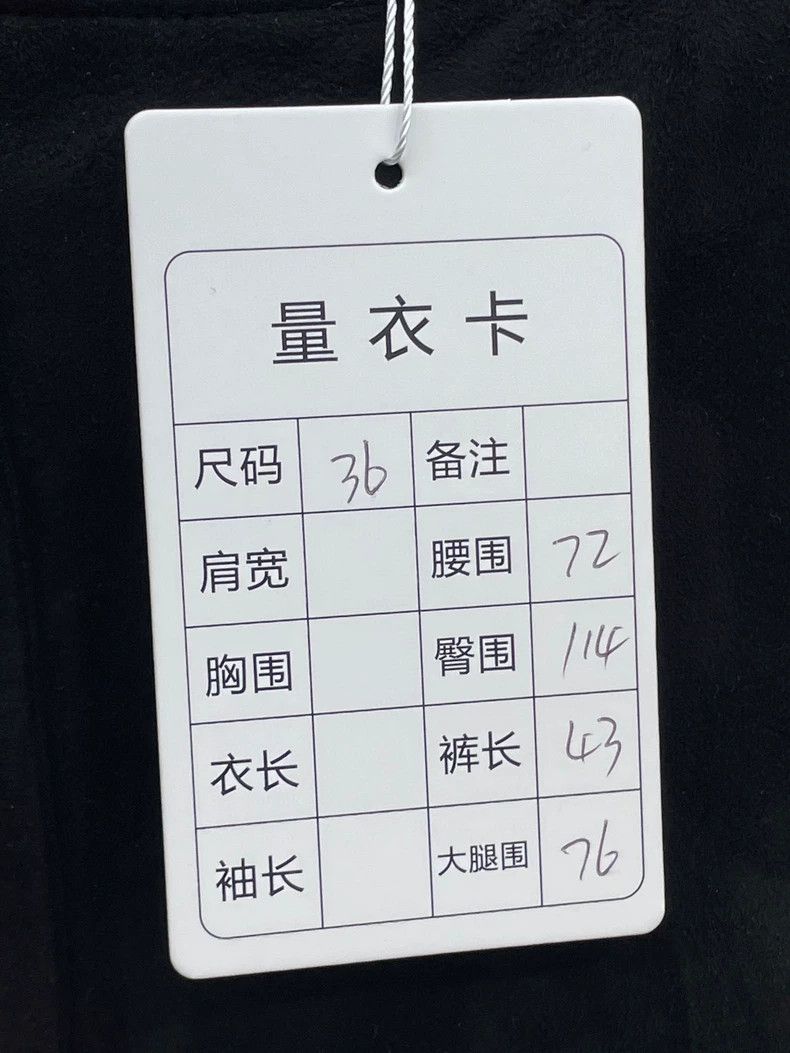 量衣卡
尺码 36 备注
肩宽 腰围 72
胸围 臀围 114
衣长 裤长 43
袖长 大腿围 76